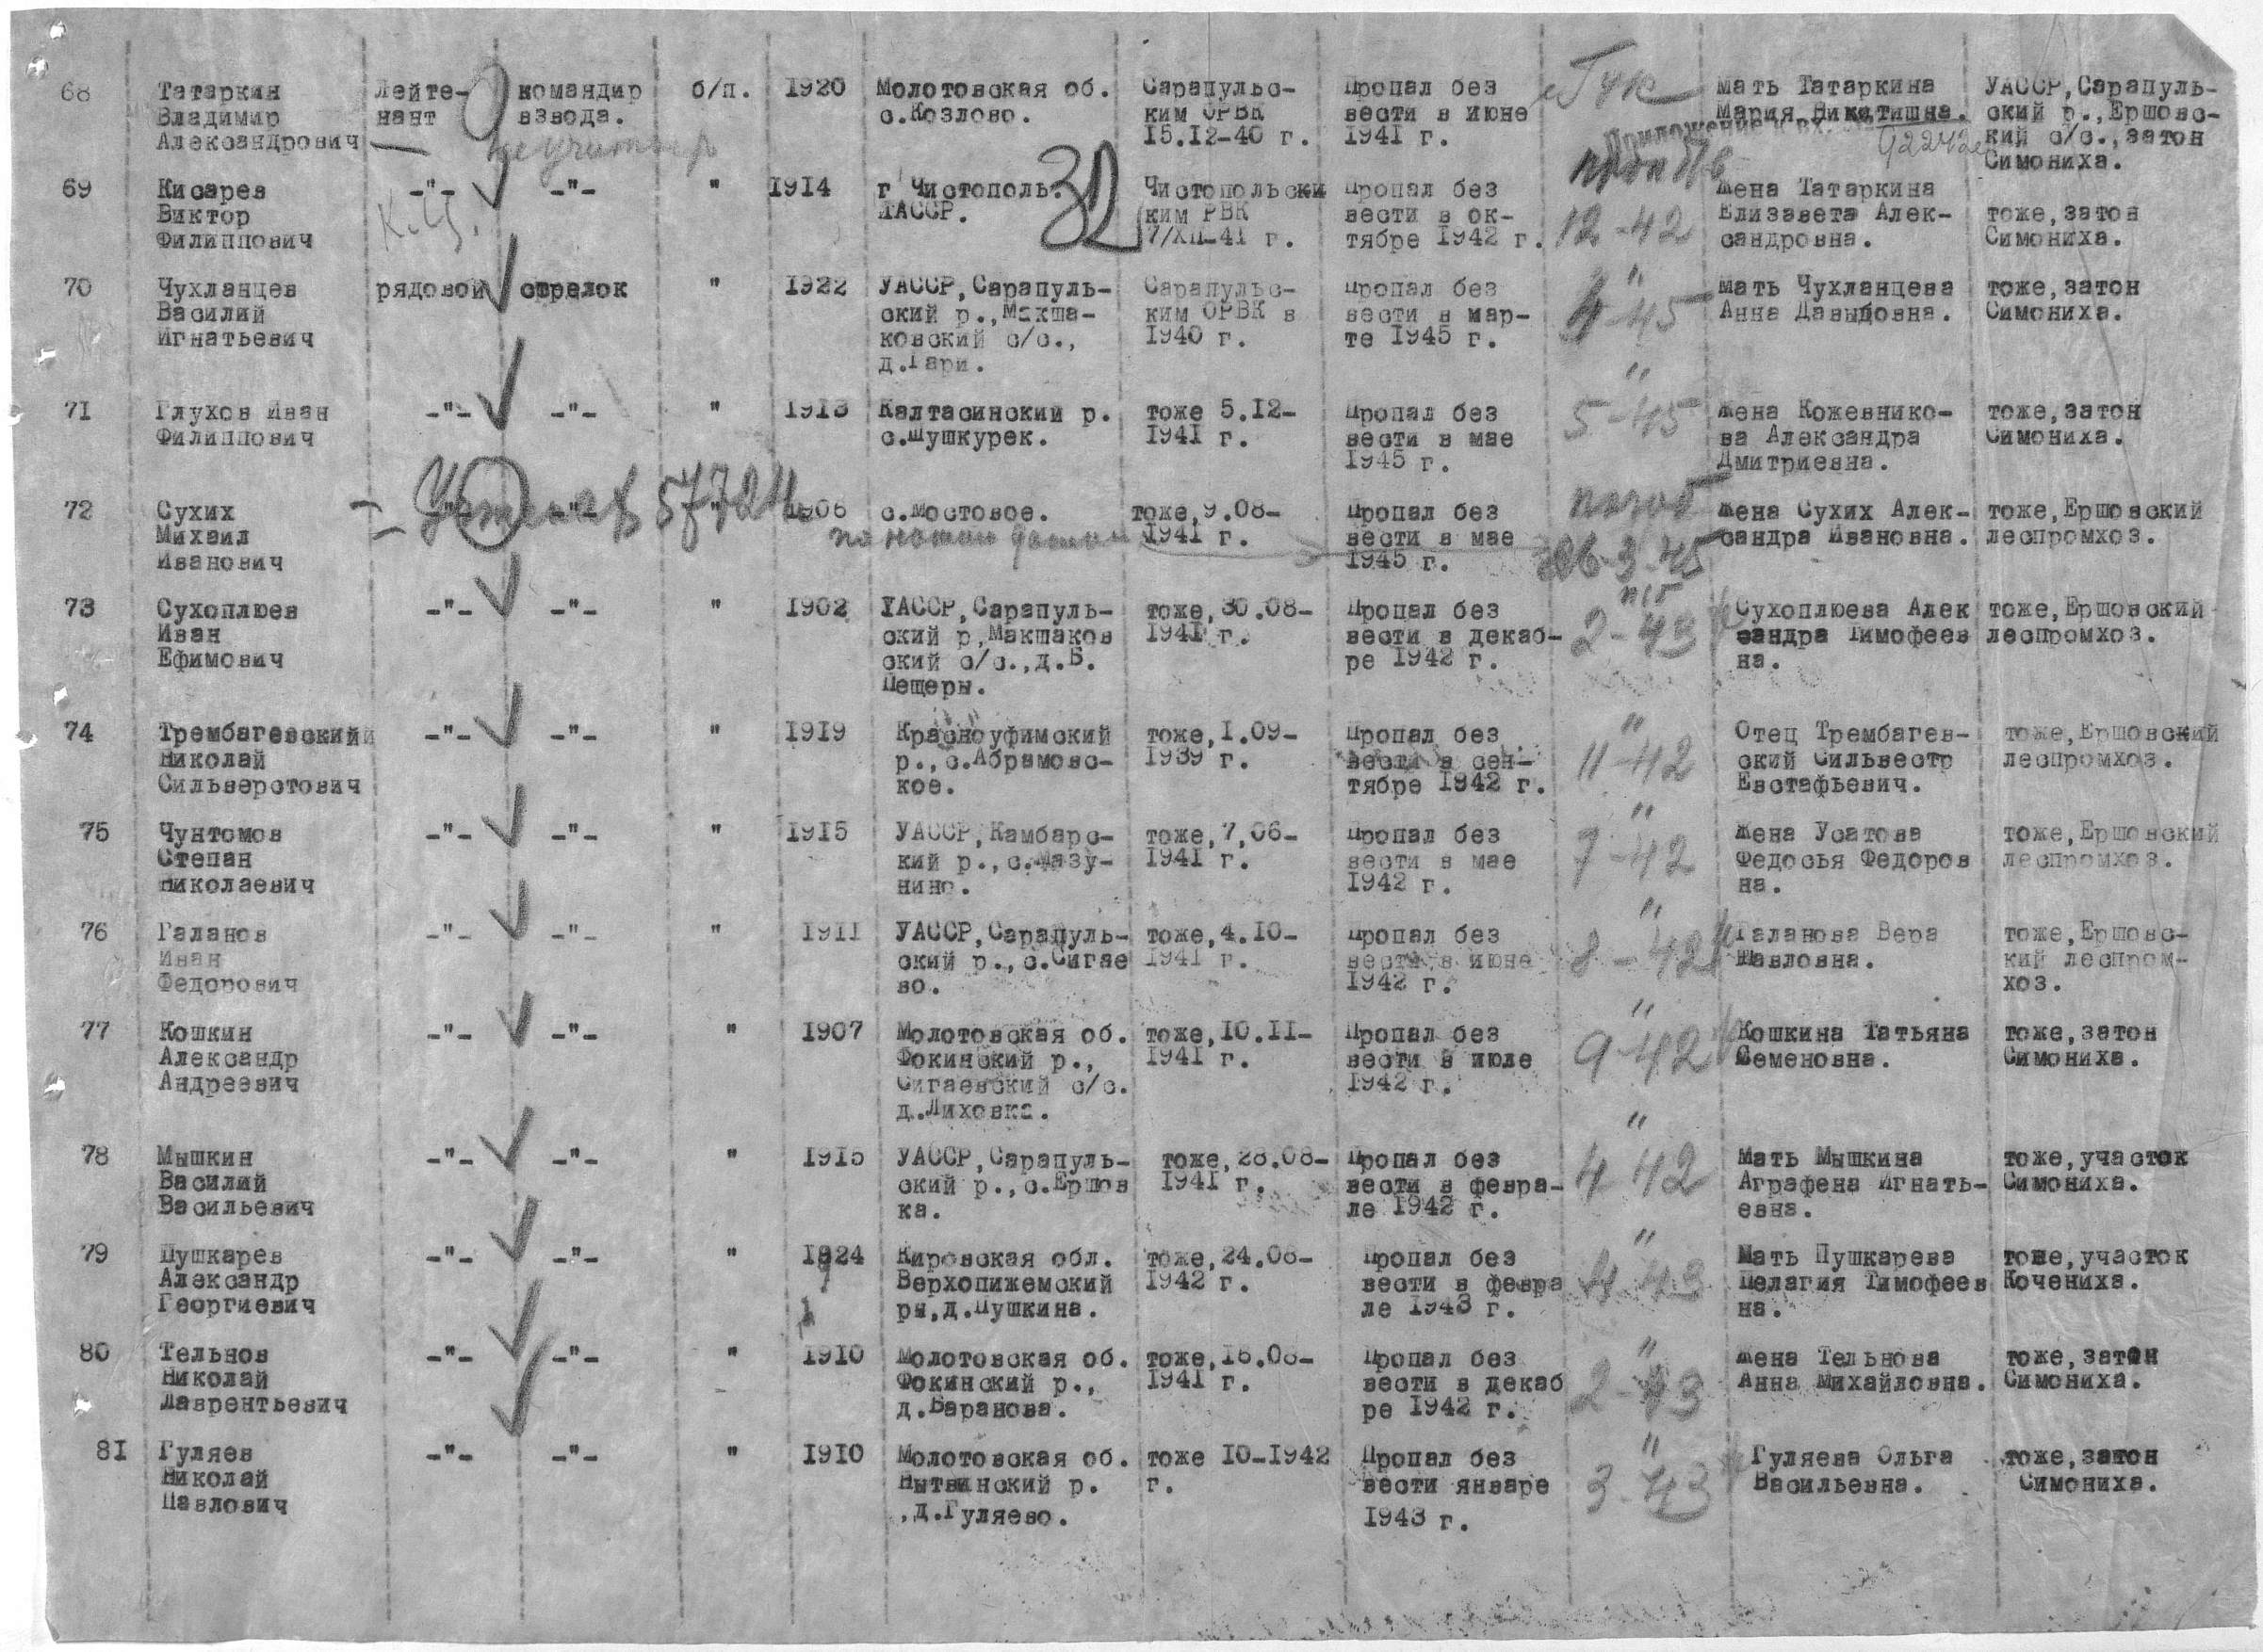 68 Татаркин Лейте- командир б/п. 1920 Молотовская об. Сарапульс- Пропал без Мать Татаркина УАССР,Сарапуль-
Владимир нант взвода. с.Козлово. ким ОРВК вести в июне Мария Никитишна. ский р.,Ершовс-
Александрович 15.12-40 г. 1941 г. Приложение к вх. 92242 кий с/с.,затон
Симониха.
69 Кисарев -"- -"- " 1914 г Чистополь. 32 Чистопольски Пропал без Жена Татаркина
Виктор К.У. ТАССР. ким РВК вести в ок- 12-42 Елизавета Алек- тоже,затон
Филиппович 7/XII-41 г. тябре 1942 г. сандровна. Симониха.
70 Чухланцев рядовой стрелок " 1922 УАССР,Сарапуль- Сарапульс- Пропал без " Мать Чухланцева тоже,затон
Василий ский р.,Макша- ким ОРВК в вести в мар- 4-45 Анна Давыдовна. Симониха.
Игнатьевич ковский с/с., 1940 г. те 1945 г.
д.Гари.
71 Глухов Иван -"- -"- " 1913 Калтасинский р. тоже 5.12- Пропал без " 5-45 Жена Кожевнико- тоже,затон
Филиппович с.Шушкурек. 1941 г. вести в мае ва Александра Симониха.
1945 г. Дмитриевна.
72 Сухих -"- -"- 57724 " 1906 с.Мостовое. тоже,9.08- Пропал без погиб Жена Сухих Алек- тоже,Ершовский
Михаил 1941 г. вести в мае сандра Ивановна. леспромхоз.
Иванович 1945 г. 26-3-45
73 Сухоплюев -"- -"- " 1902 УАССР,Сарапуль- тоже,30.08- Пропал без п/б Сухоплюева Алек тоже,Ершовский
Иван ский р,Макшаков 1941 г. вести в декаб- 2-43 сандра Тимофеев леспромхоз.
Ефимович ский с/с.,д.Б. ре 1942 г. на.
Пещеры.
74 Трембагевский -"- -"- " 1919 Красноуфимский тоже,1.09- Пропал без " Отец Трембагев- тоже,Ершовский
Николай р.,с.Абрамовс- 1939 г. вести в сен- 11-42 ский Сильвестр леспромхоз.
Сильверстович кое. тябре 1942 г. Евстафьевич.
75 Чунтомов -"- -"- " 1915 УАССР,Камбарс- тоже,7,06- Пропал без " Жена Усатова тоже,Ершовский
Степан кий р.,с.Мазу- 1941 г. вести в мае 7-42 Федосья Федоров леспромхоз.
Николаевич нино. 1942 г. на.
76 Галанов -"- -"- " 1911 УАССР,Сарапуль- тоже,4.10- Пропал без " Галанова Вера тоже,Ершовс-
Иван ский р.,с.Сигае 1941 г. вести в июне 8-42 Павловна. кий леспром-
Федорович во. 1942 г. хоз.
77 Кошкин -"- -"- " 1907 Молотовская об. тоже,10.11- Пропал без " Кошкина Татьяна тоже,затон
Александр Фокинский р., 1941 г. вести в июле 9-42 Семеновна. Симониха.
Андреевич Сигаевский с/с. 1942 г.
д.Лиховка.
78 Мышкин -"- -"- " 1915 УАССР,Сарапуль- тоже,28.08- Пропал без " Мать Мышкина тоже,участок
Василий ский р.,с.Ершов 1941 г. вести в февра- 4 42 Аграфена Игнать- Симониха.
Васильевич ка. ле 1942 г. евна.
79 Пушкарев -"- -"- " 1924 Кировская обл. тоже,24.08- Пропал без " Мать Пушкарева тоже,участок
Александр Верхопижемский 1942 г. вести в февра 4-43 Пелагия Тимофеев Кочениха.
Георгиевич рн,д.Пушкина. ле 1943 г. на.
80 Тельнов -"- -"- " 1910 Молотовская об. тоже,16.08- Пропал без " Жена Тельнова тоже,затон
Николай Фокинский р., 1941 г. вести в декаб 2-43 Анна Михайловна. Симониха.
Лаврентьевич д.Баранова. ре 1942 г.
81 Гуляев -"- -"- " 1910 Молотовская об. тоже 10-1942 Пропал без " Гуляева Ольга тоже,затон
Николай Нытвинский р. г. вести январе 3-43 Васильевна. Симониха.
Павлович ,д.Гуляево. 1943 г.